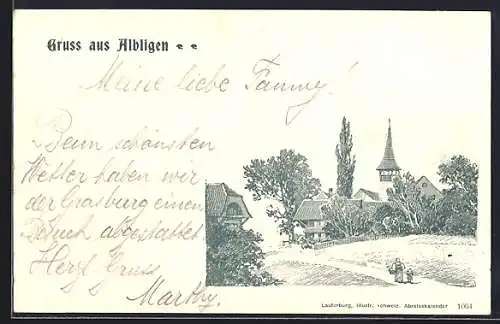 Gruss aus Albligen
Meine liebe Fanny!
Beim schönsten
Wetter haben wir
der Grasburg einen
Besuch abgestattet
Herzl Gruss
Marthy.
Lauterburg, Illustr. schweiz. Abreisskalender 1064